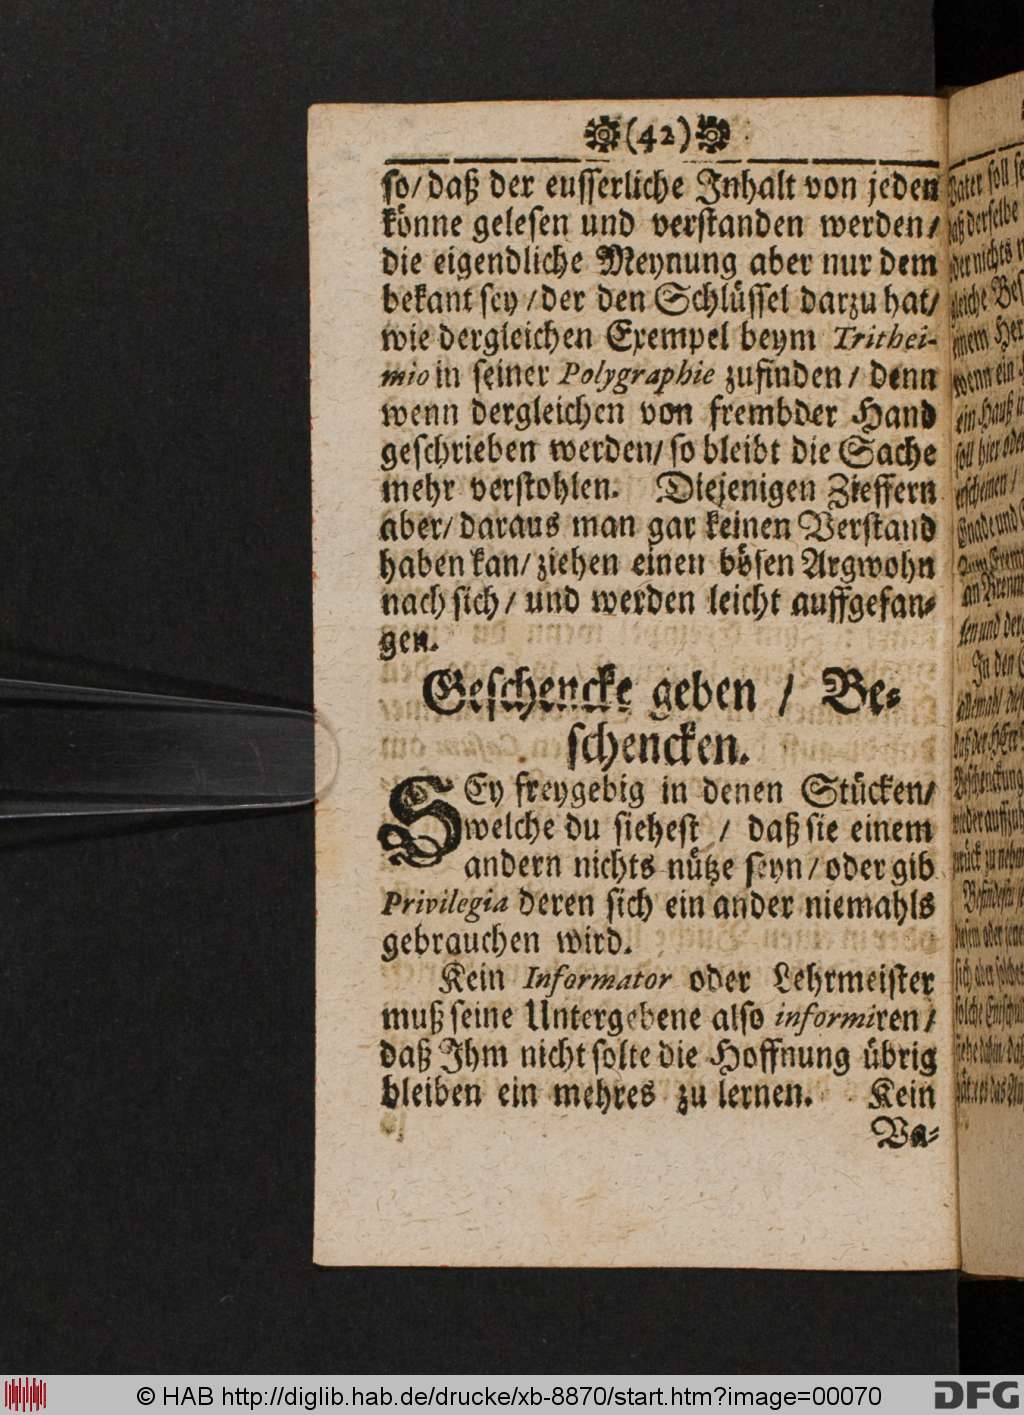 (42)
so/ daß der eusserliche Inhalt von jeden
könne gelesen und verstanden werden/
die eigendliche Meynung aber nur dem
bekant sey/ der den Schlüssel darzu hat/
wie dergleichen Exempel beym Trithei-
mio in seiner Polygraphie zufinden/ denn
wenn dergleichen von frembder Hand
geschrieben werden/ so bleibt die Sache
mehr verstohlen. Diejenigen Zieffern
aber/ daraus man gar keinen Verstand
haben kan/ ziehen einen bösen Argwohn
nach sich/ und werden leicht auffgefan-
gen.
Geschencke geben / Be-
schencken.
SEy freygebig in denen Stücken/
welche du siehest / daß sie einem
andern nichts nütze seyn/ oder gib
Privilegia deren sich ein ander niemahls
gebrauchen wird.
Kein Informator oder Lehrmeister
muß seine Untergebene also informiren/
daß Ihm nicht solte die Hoffnung übrig
bleiben ein mehres zu lernen. Kein
Va-
© HAB http://diglib.hab.de/drucke/xb-8870/start.htm?image=00070
DFG